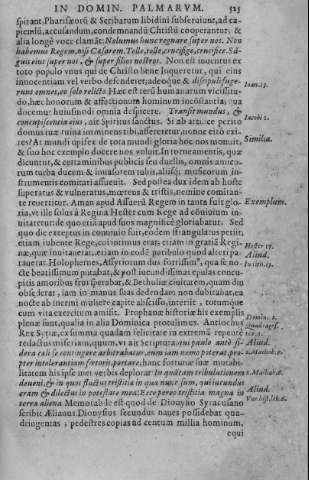 IN DOMIN. PALMARVM. 525
spirant, Pharisæorũ & Scribarum libidini subseruiunt, ad ca-
piendũ, accusandum, condemnandũ Christũ cooperantur, &
alia longè voce clamãt: Nolumus hunc regnare super nos. Non
habemus Regem, nisi Cæsarem. Tolle, tolle, crucifige, crucifige. Sã-
guis eius super nos, & super filios nostros. Non est inuentus ex
toto populo vnus qui de Christo bene loqueretur, qui eius
innocentiam vel verbo defenderet, adeoq; & discipuli fuge-
runt omnes, eo solo relicto. Hæc est rerũ humanarum vicissitu-
do, hæc honorum & affectionum hominum inconstantia, qua
docemur huiusmodi omnia despicere. Transit mundus, &
concupiscentia eius, ait Spiritus sanctus. Si ab
domus tuæ ruina imminens tibi, assereretur, nonne citò exi-
res? At mundi opifex de tota mundi gloria hoc nos monuit,
& suo hoc exemplo docere nos voluit. In torneamentis, quæ
dicuntur, & certaminibus publicis seu duellis, omnis amico-
rum turba ducem & inuasorem tubis, aliisq; musicorum in-
strumentis comitari assueuit. Sed postea dux idem ab hoste
superatus & vulneratus, mœrens & tristis, nemine comitan-
te reuertitur. Aman apud Assuerũ Regem in tanta fuit glo-
ria, vt ille solus à Regina Hester cum Rege ad cõuiuium in-
uitaretur: de quo etia apud suos magnificè gloriabatur. Sed
quo die exceptus in conuiuio fuit, eodem strangulatus periit,
etiam iubente Rege, cui intimus erat, etiam in gratiã Regi-
næ, quæ inuitauerat, etiam in eodẽ patibulo quod alteri pa-
rauerat. Holophernes, Assyriorum dux fortissimus, qua se no-
cte beatissimum putabat, & post iucundissimas epulas concu-
pitis amoribus frui sperabat, & Bethuliæ ciuitatem, quam diu
obsederat, iam in manus suas dedendam non dubitabat, ea
nocte ab inermi muliere capite abscisso, interiit, totumque
cum vita exercitum amisit. Prophanæ historiæ his exemplis
plenæ sunt, qualia in alia Dominica protulimus. Antiochus
Rex Syriæ, ex summa quadam felicitate in extremã repentè
redactus miseriam, quum, vt ait Scriptura, qui paulò antè si-
dera cæli se contingere arbitrabatur, eum iam nemo poterat, pro-
pter intolerantiam fœtoris, portare, hanc fortunæ suæ mutabi-
litatem his ipse met verbis deplorat: In quãtam tribulationem
deueni, & in quos fluctus tristitiæ in qua nunc sum, qui iucundus
eram & dilectus in potestate mea? Ecce pereo tristitia magna in
terra aliena. Memorabile est quod de Dionysio Syracusano
scribit Ælianus. Dionysius secundus naues possidebat qua-
dringentas, pedestres copias ad centum millia hominum,
equi
Ioan. 19.
Iacobi 2.
Similia.
Exemplum.
Hester 17.
Aliud.
Iudith. 13.
Domin. 2.
Quadrages.
Aliud.
2. Machab. 9.
1. Machab. 6.
Aliud.
Var. hist. lib. 6.